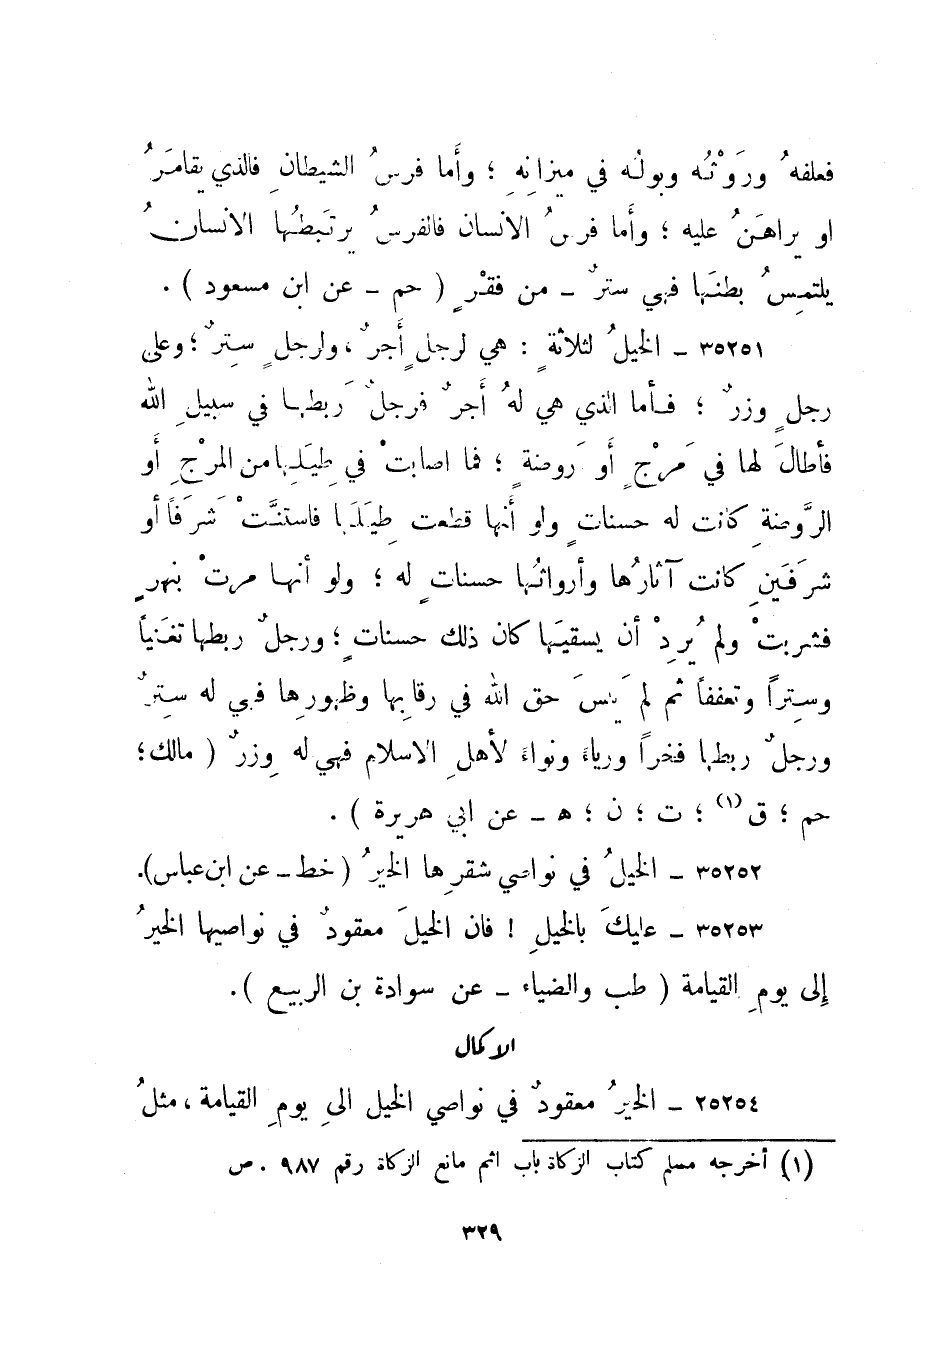 فعلفهُ وروَثُه وبولُه في ميزانِهِ ؛ وأَما فرسُ الشيطانِ فالذي يقامَرُ
او يراهَنُ عليه ؛ وأَما فرسُ الانسان فالفرسُ يرتَبطُها الانسانُ
يلتمِسُ بطنَها فهي سترٌ ــ من فقْرٍ ( حم ــ عن ابن مسعود ) .
٣٥٢٥١ ــ الخيلُ لثلاثةٍ : هي لرجلٍ أَجرٌ ، ولرجلٍ سِترٌ ؛ وعلى
رجلٍ وزرٌ ؛ فأما الذي هي لهُ أَجرٌ فرجلٌ رَبطها في سبيلِ الله
فأطالَ لها في مَرْجٍ أَو رَوضةٍ ؛ فما اصابتْ في طِيَلِها من المرْجِ أَو
الرَّوضةِ كانت له حسناتٍ ولو أَنها قطعت طِيَلَها فاستنَّتْ شَرَفاً أو
شرَفَينِ كانت آثارُها وأرواثُها حسناتٍ له ؛ ولو أنها مرتْ بنهرٍ
فشربتْ ولم يُرِدْ أن يسقيَها كان ذلك حسناتٍ ؛ ورجلٌ ربطها تغَنياً
وسِتراً وتعففاً ثم لم يَنسَ حق الله في رقابِها وظهورِها فهي له سِترٌ
ورجلٌ ربطها فخراً ورياءَ ونواءَ لأهلِ الاسلام فهي له وِزرٌ ( مالك ؛
حم ؛ ق (١) ؛ ت ؛ ن ؛ ه ــ عن ابي هريرة ) .
٣٥٢٥٢ ــ الخيلُ في نواصي شقرِها الخيرُ ( خط ــ عن ابن عباس ).
٣٥٢٥٣ ــ عليكَ بالخيلِ ! فان الخيلَ معقودٌ في نواصيها الخيرُ
إلى يومِ القيامة ( طب والضياء ــ عن سوادة بن الربيع ).
الاكمال
٢٥٢٥٤ ــ الخيرُ معقودٌ في نواصي الخيل الىِ يومِ القيامة ، مثلُ
(١) أخرجه مسلم كتاب الزكاة باب اثم مانع الزكاة رقم ٩٨٧ . ص
٣٢٩